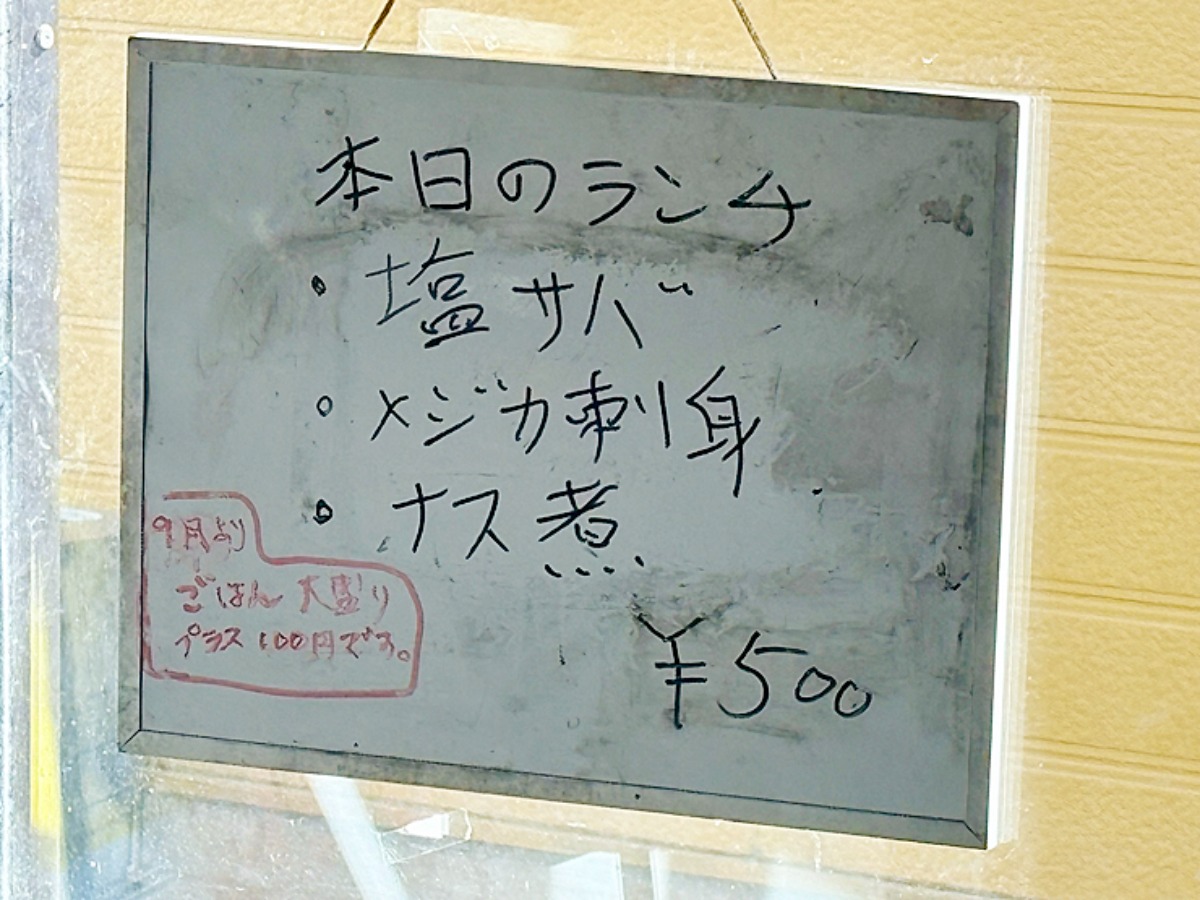 本日のランチ
・塩サバ
・メジカ刺身
・ナス煮
9月より
ごはん大盛り
プラス100円です。
¥500